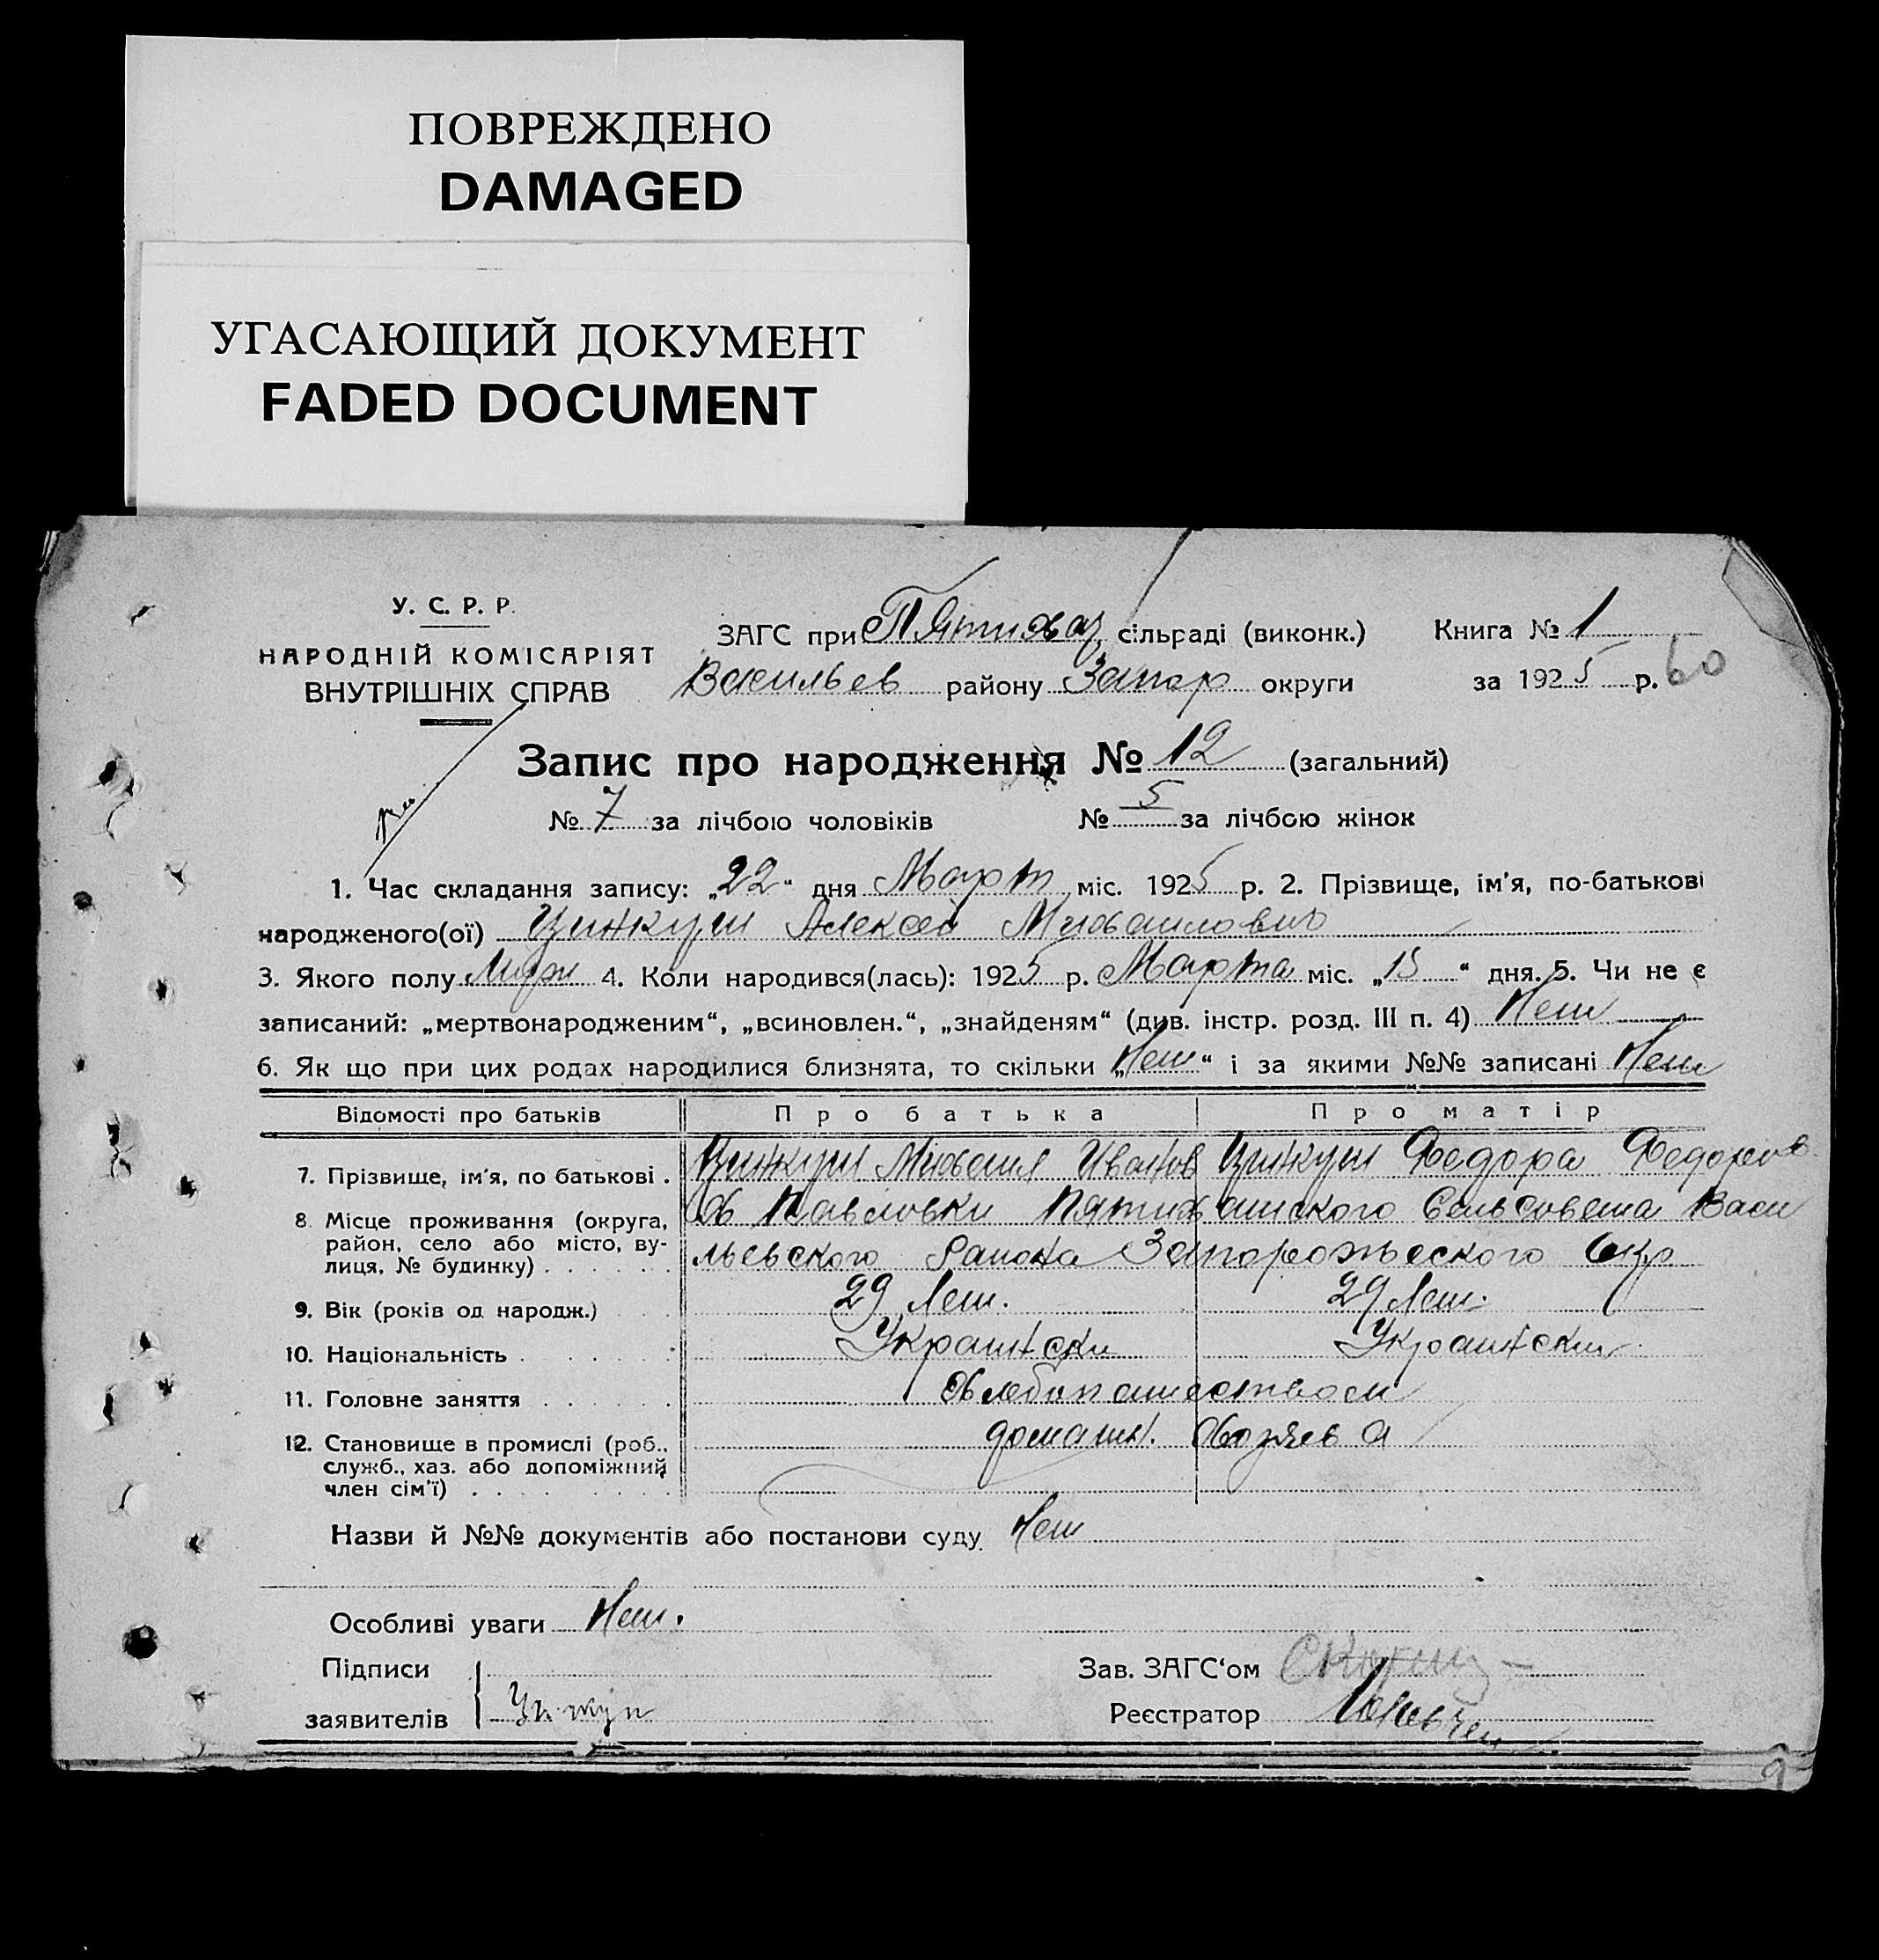 ПОВРЕЖДЕНО
DAMAGED
УГАСАЮЩИЙ ДОКУМЕНТ
FADED DOCUMENT
У. С. Р. Р.
НАРОДНІЙ КОМІСАРІЯТ
ВНУТРІШНІХ СПРАВ
ЗАГС при Пятихат сільраді (виконк.)
Васильев району Запор округи
Книга № 1
за 1925 р. 60
Запис про народження № 12 (загальний)
№ 7 за лічбою чоловіків № 5 за лічбою жінок
1. Час складання запису: „22“ дня Март міс. 1925 р. 2. Прізвище, ім'я, по-батькові
народженого(ої) Алексей Михаилович
3. Якого полу Муж 4. Коли народився(лась): 1925 р. Марта міс. „15“ дня. 5. Чи не є
записаний: „мертвонародженим“, „всиновлен.“, „знайденям“ (див. інстр. розд. III п. 4) Нет
6. Як що при цих родах народилися близнята, то скільки „Нет“ і за якими №№ записані Нет
Відомості про батьків Про батька Про матір
7. Прізвище, ім'я, по батькові . Михаил Иванов Федора Федоров
8. Місце проживання (округа, район, село або місто, вулиця, № будинку) . . . . . . Х Павловки Пятихатского Сельсовета Васи
льевского Раиона Запорожского Окр
9. Вік (років од народж.) 29 Лет. 29 Лет.
10. Національність . . . . . Украински Украински
11. Головне заняття . . . . . . Хлебопашеством
12. Становище в промислі (роб., служб., хаз. або допоміжний член сім'ї) . . . . . . . домашн. Хозяев а
Назви й №№ документів або постанови суду Нет
Особливі уваги Нет.
Підписи
заявителів
Зав. ЗАГС‘ом
Реєстратор
9